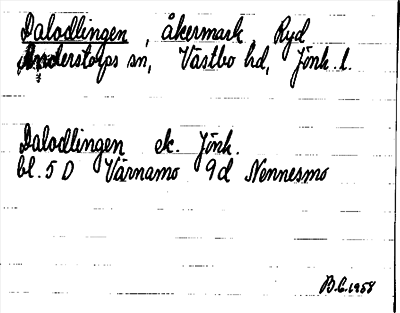 Dalodlingen, åkermark, Ryd
Anderstorps sn, Västbo hd, Jönk. l.
Dalodlingen ek. Jönk.
bl. 5 D Värnamo 9d Nennesmo
B.G. 1958